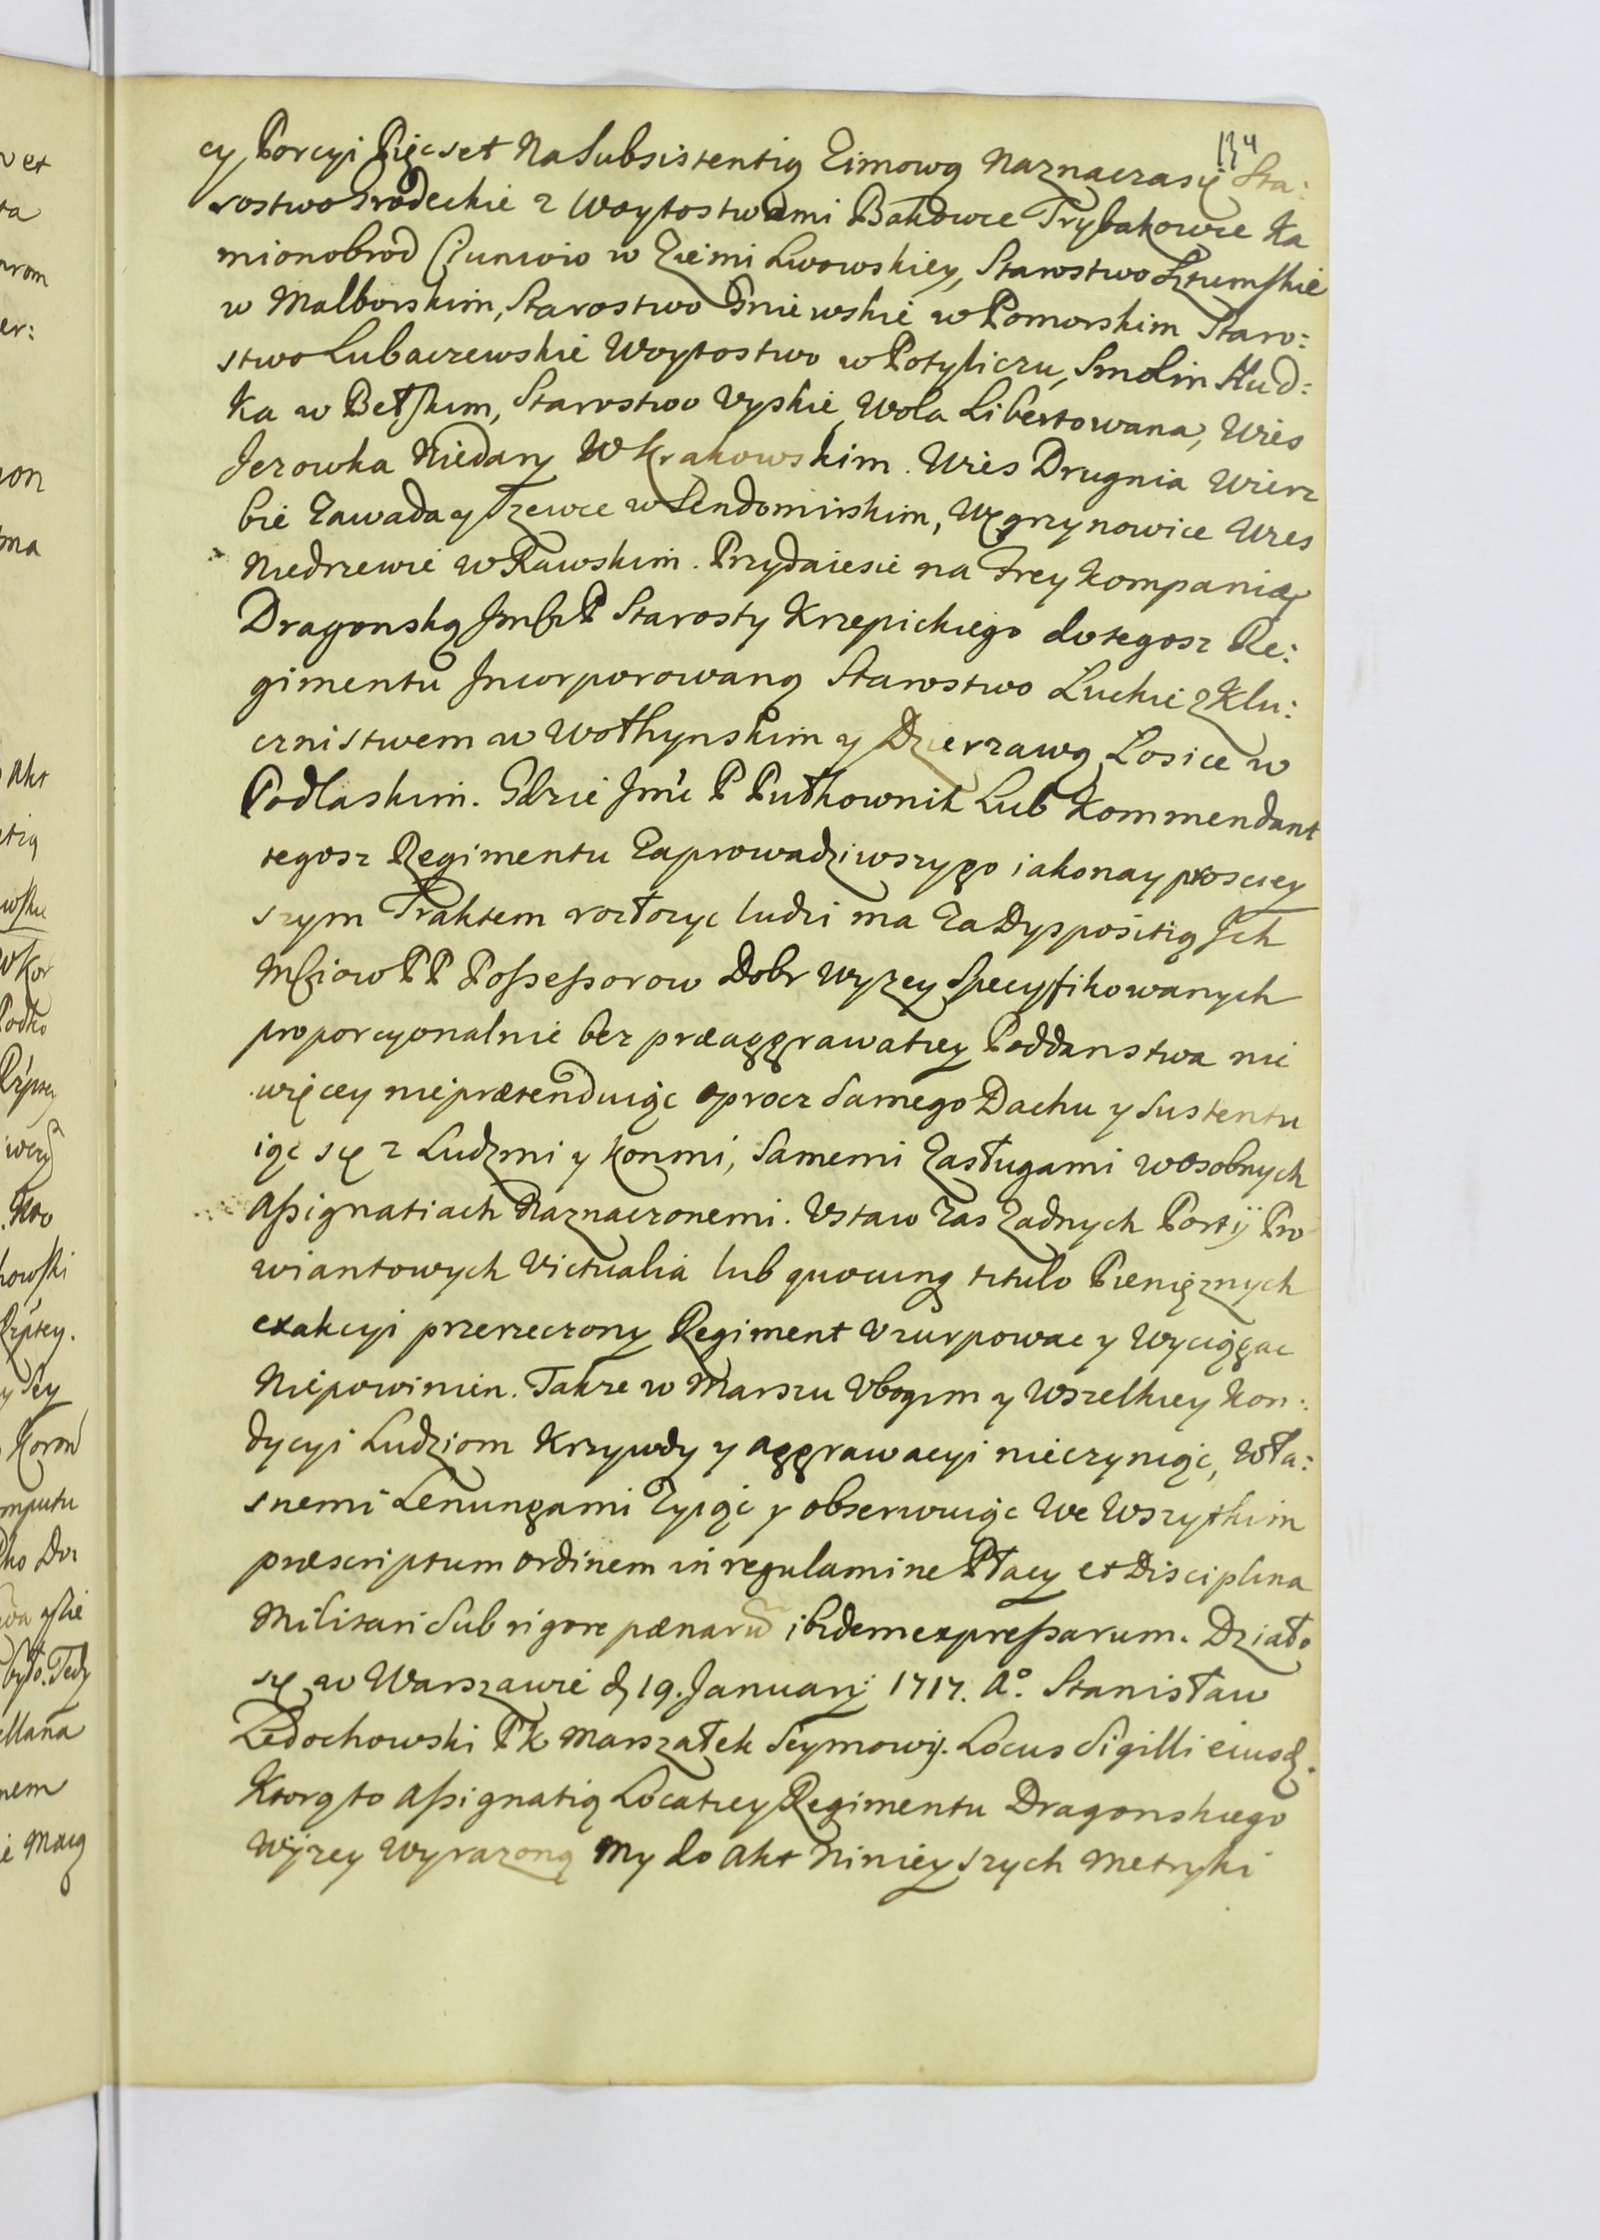 134
cy Porcyi Pięcset Na Subsistentią Zimową Naznacza się Sta:
rostwo Grodeckie z Woytostwami Bakowce Trybakowce Ka
mionobrod Czuniow w Ziemi Lwowskiey, Starostwo Sztumskie
w Malborskim, Starostwo Gniewskie w Pomorskim Staro:
stwo Lubaczewskie Woytostwo w Potyliczu, Smolin Hud:
ka w Bełskim, Starostwo Ryskie, Wola Libertowana, Wies
Jerowka Niedary W Krakowskim. Wies Drugnia Wierz
bie Zawada y Trzewce w Sendomirskim, Węgrzynowice Wies
Niedrzewie w Rawskim. Przydaiesie na trey Kompanią
Dragonską JmściP Starosty Krzepickiego do tegosz Re:
gimentu Jncorporowaną Starostwo Luckie z Klu:
cznistwem w Wołhynskim y Dzierzawą Losice w
Podlaskim. Gdzie Jm̃ć P Pułkownik Lub Kommendant
tegosz Regimentu Zaprowadziwszy go iako nayprosciey
szym Traktem rozłozyc ludzi ma Za Dyspositią Jch
Mściow PP Possessorow Dobr wyzey Specyfikowanych
proporcyonalnie bez præaggrawatiey Poddanstwa nic
więcey nieprætenduiąc oprocz Samego Dachu y Sustentu
iąc się z Ludzmi y konmi, Samemi Zasługami w osobnych
Assignatiach Naznaczonemi. Vstaw Zas Zadnych Portij Pro
wiantowych Victualia lub quocunq titulo Pienięznych
exakcyi przerzeczony Regiment Vzurpowac y Wyciągac
Niepowinien. Takze w Marszu Vbogim y Wszelkiey Kon:
dycyi Ludziom Krzywdy y aggrawacyi nieczyniąc, Wła:
snemi Lenungami Zyiąc y obserwuiąc We Wszytkim
præscriptum ordinem in regulamine Płacy et Disciplina
Militari Sub rigore pænarũ ibidem expressarum. Działo
się w Warszawie d 19. Januarij 1717. Aº. Stanisław
Ledochowski PK Marszałek Seymowy. Locus Sigilli eiusd.
Ktorą to Assignatią Locatiey Regimentu Dragonskiego
Wyzey Wyrazoną My do Akt Ninieyszych Metryki